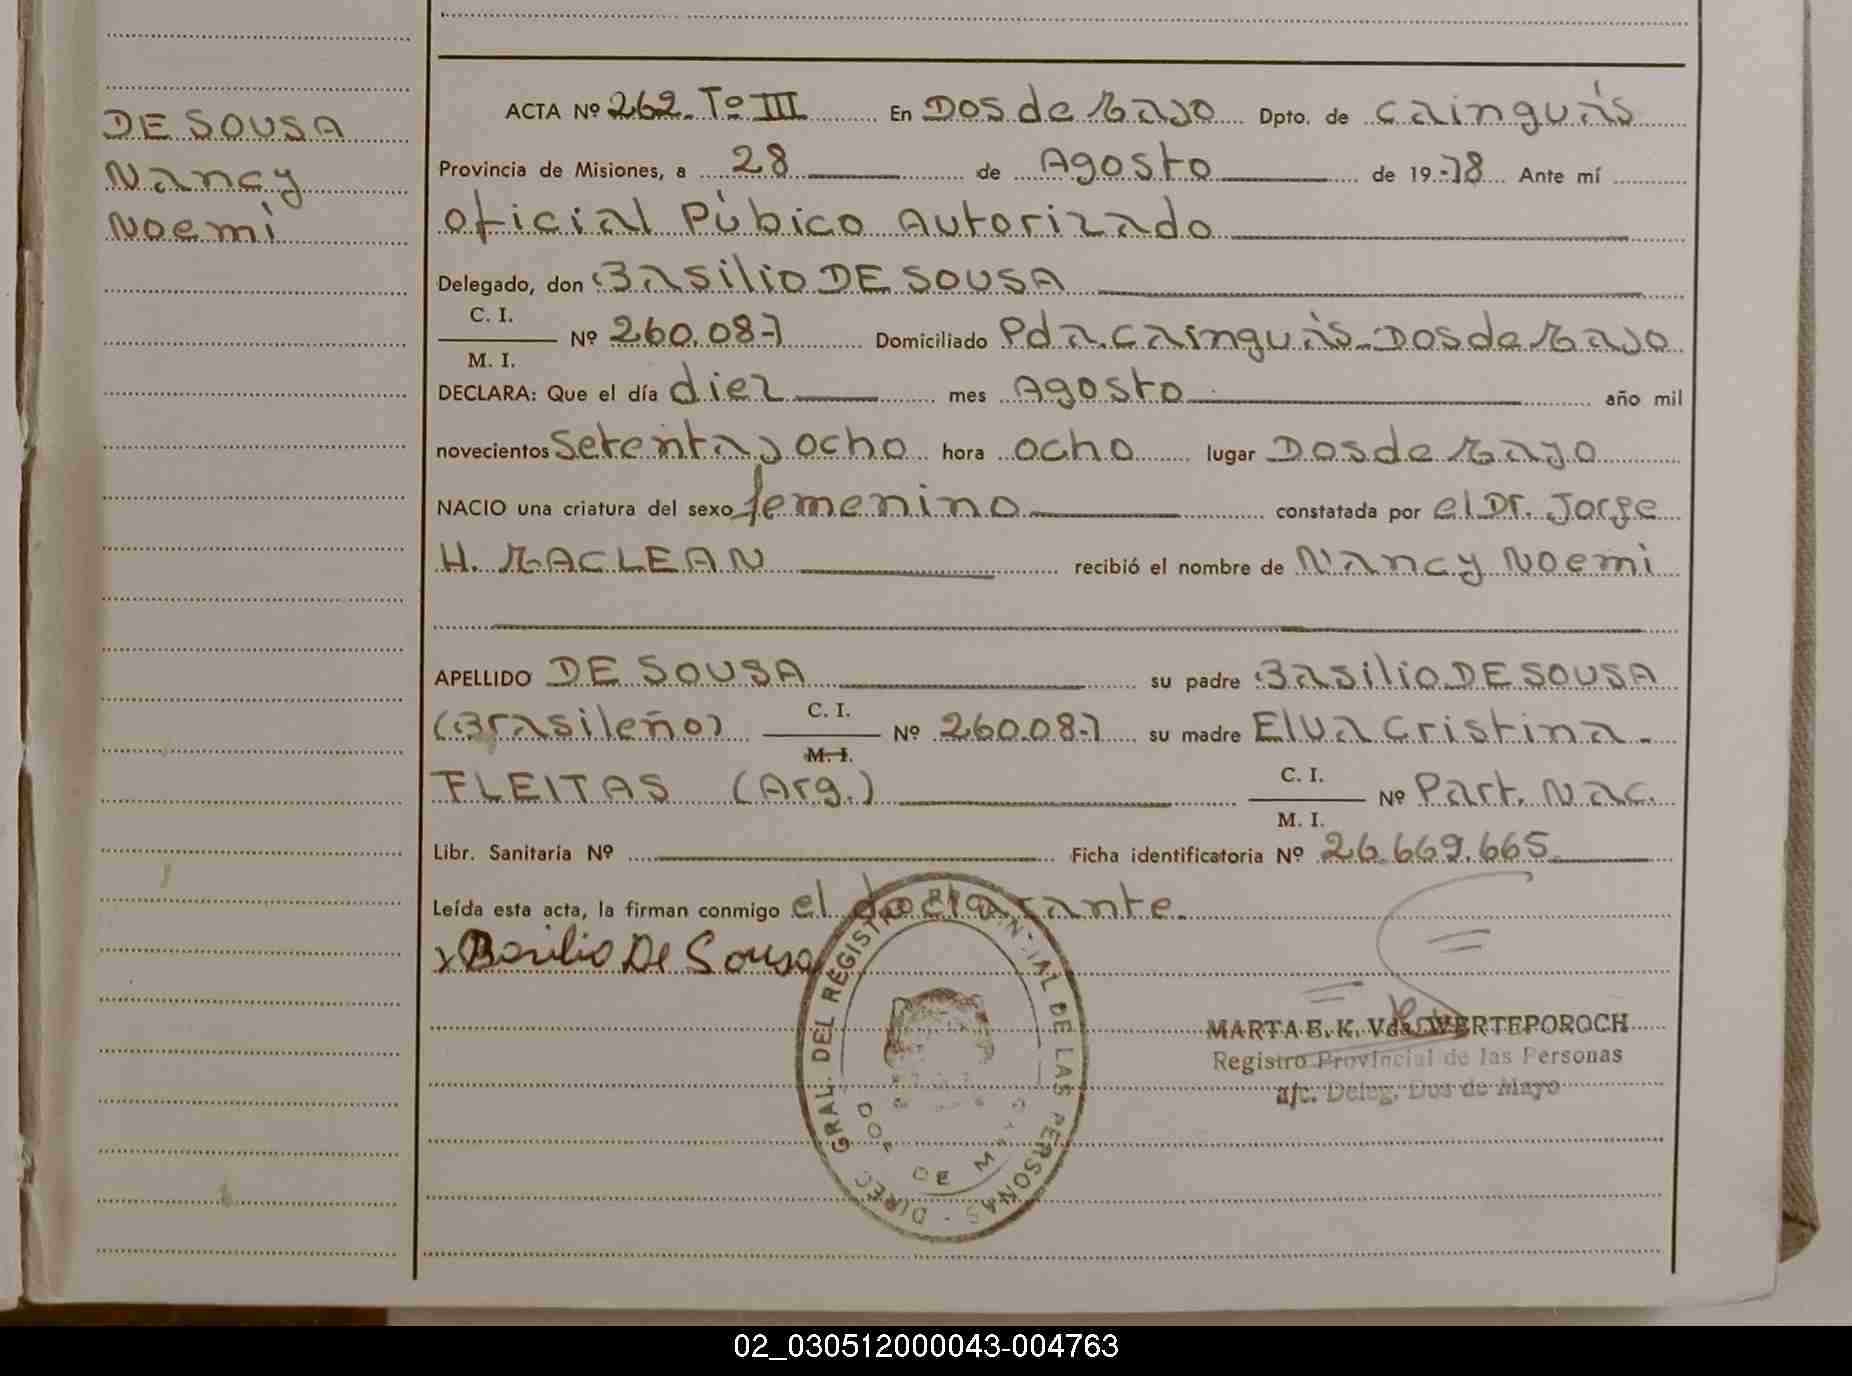 DE SOUSA
Nancy
Noemi
ACTA Nº 262. Tº III En Dos de Mayo Dpto. de Cainguás
Provincia de Misiones, a 28 de Agosto de 19 78 Ante mí
Oficial Púbico Autorizado
Delegado, don Basilio DE SOUSA
C. I.
M. I.
Nº 260.087 Domiciliado Pda. Cainguás - Dos de Mayo
DECLARA: Que el día diez mes Agosto año mil
novecientos Setenta y ocho hora ocho lugar Dos de Mayo
NACIO una criatura del sexo femenino constatada por el Dr. Jorge
H. MACLEAN recibió el nombre de Nancy Noemi
APELLIDO DE SOUSA su padre Basilio DE SOUSA
(Brasileño) C. I. M. I. Nº 260.087 su madre Elva Cristina -
FLEITAS (Arg.) C. I. M. I. Nº Part. Nac.
Libr. Sanitaria Nº Ficha identificatoria Nº 26.669.665
Leída esta acta, la firman conmigo el declarante.
x Basilio De Sousa
DIREC GRAL. DEL REGISTRO PROVINCIAL DE LAS PERSONAS -
DOS DE MAYO
MARTA B. K. Vda. WERTEPOROCH
Registro Provincial de las Personas
a/c. Deleg. Dos de Mayo
02_030512000043-004763